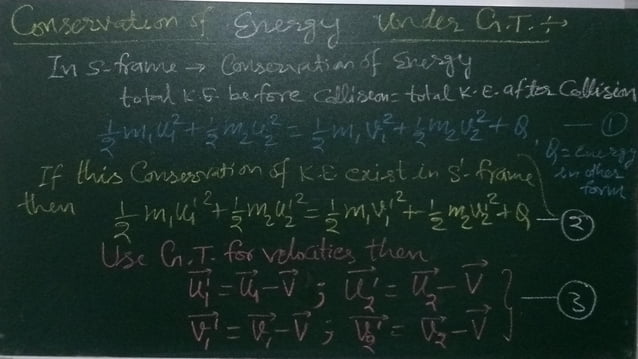 Conservation of Energy under G.T. :→
In S-frame → Conservation of Energy
total K.E. before Collision = total K.E. after Collision
½m₁u₁² + ½m₂u₂² = ½m₁v₁² + ½m₂v₂² + Q — ①
Q = Energy in other form
If this Conservation of K.E. exist in S'-frame
then ½m₁u₁'² + ½m₂u₂'² = ½m₁v₁'² + ½m₂v₂'² + Q — ②
Use G.T. for velocities then
u⃗₁' = u⃗₁ - V⃗ ; u⃗₂' = u⃗₂ - V⃗
v⃗₁' = v⃗₁ - V⃗ ; v⃗₂' = v⃗₂ - V⃗ } — ③